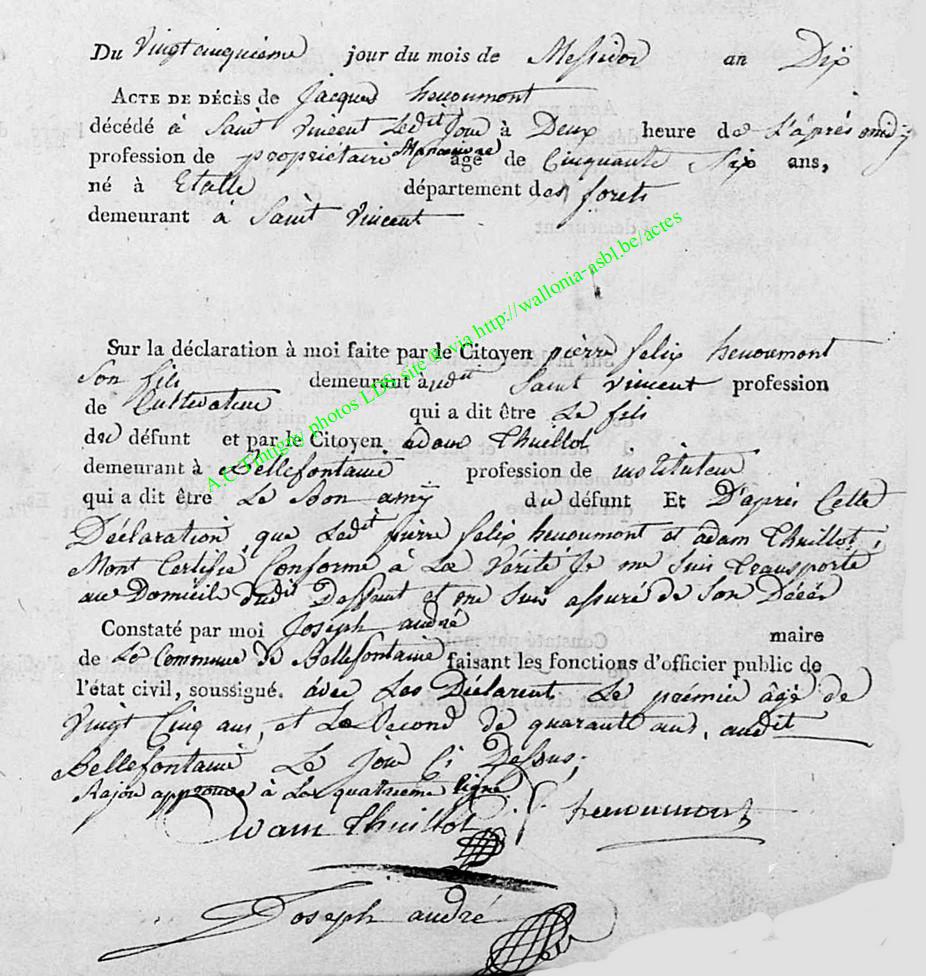 Du Vingt cinquieme jour du mois de Messidor an Dix
ACTE DE DÉCÈS de Jacques henoumont
décédé à Saint Vincent Ledit Jour à Deux heure de L'après midy
profession de propriétaire âgé de Cinquante Six ans,
né à Etalle département des forets
demeurant à Saint Vincent
Sur la déclaration à moi faite par le Citoyen pierre felix henoumont
Son fils demeurant audit Saint Vincent profession
de Cultivateur qui a dit être Le fils
du défunt et par le Citoyen adam Thuillot
demeurant à Bellefontaine profession de instituteur
qui a dit être Le Bon amy du défunt Et D'après Cette
Déclaration que Ledit pierre felix henoumont et adam Thuillot,
Mont Certifié Conforme à La Vérité Je me Suis Transporté
au Domicil dudit Deffunt et me Suis assuré de Son Décès
Constaté par moi Joseph andré maire
de La Commune de Bellefontaine faisant les fonctions d'officier public de
l'état civil, soussigné. avec Les Déclarent Le prémié âgé de
Vingt Cinq ans, et Le Second de quarante ans, audit
Bellefontaine Le Jour Ci Dessus;
Rajou approuvé à La quatrieme ligne
adam Thuillot henoumont
Joseph andré
A.C. Tintigny photos LDS site via http://wallonia-asbl.be/actes